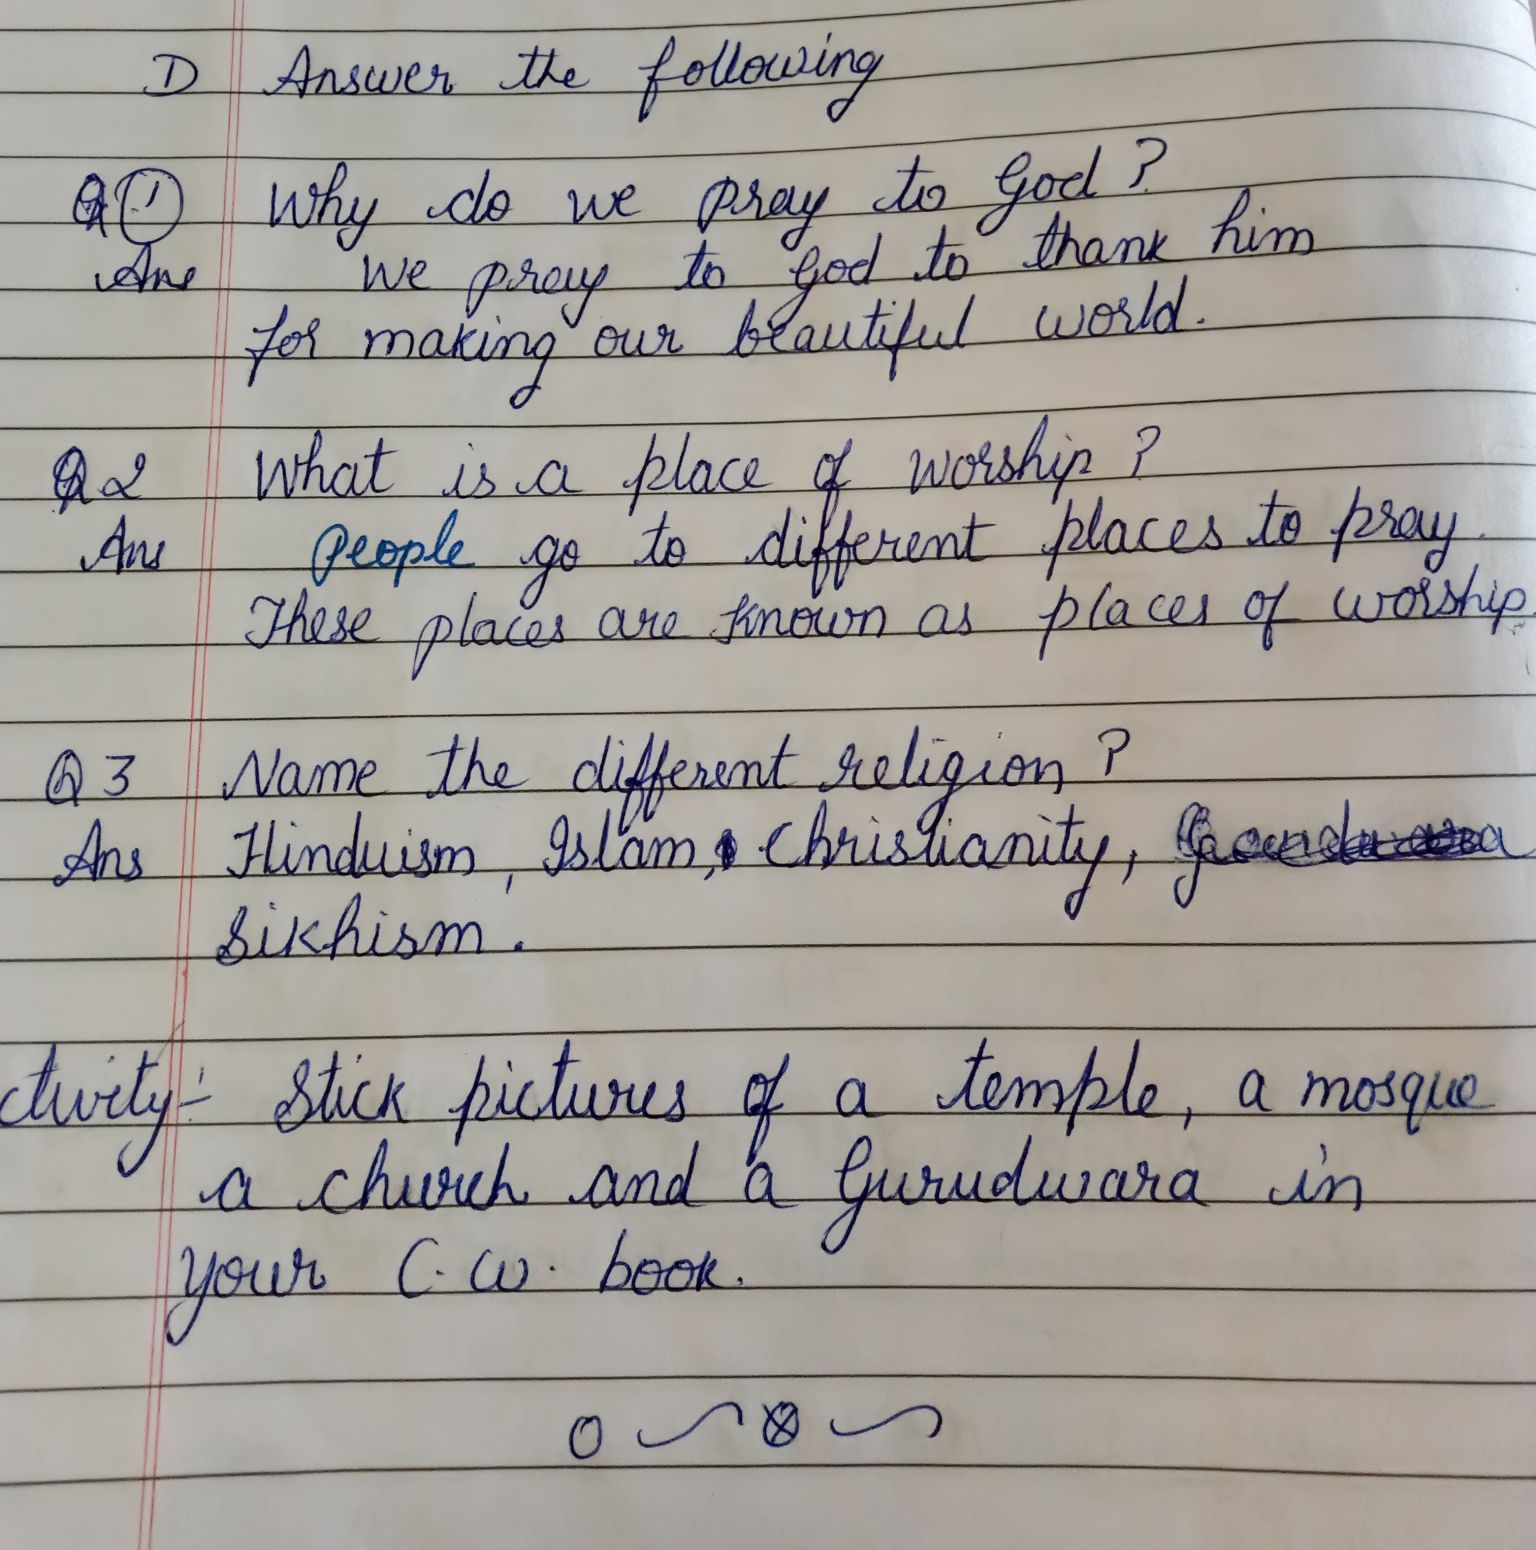 D Answer the following
Q 1 Why do we pray to God ?
Ans We pray to God to thank him
for making our beautiful world.
Q 2 What is a place of worship ?
Ans People go to different places to pray.
These places are known as places of worship.
Q 3 Name the different religion ?
Ans Hinduism, Islam, Christianity,
Sikhism.
ctivity:- Stick pictures of a temple, a mosque
a church and a Gurudwara in
your C.W. book.